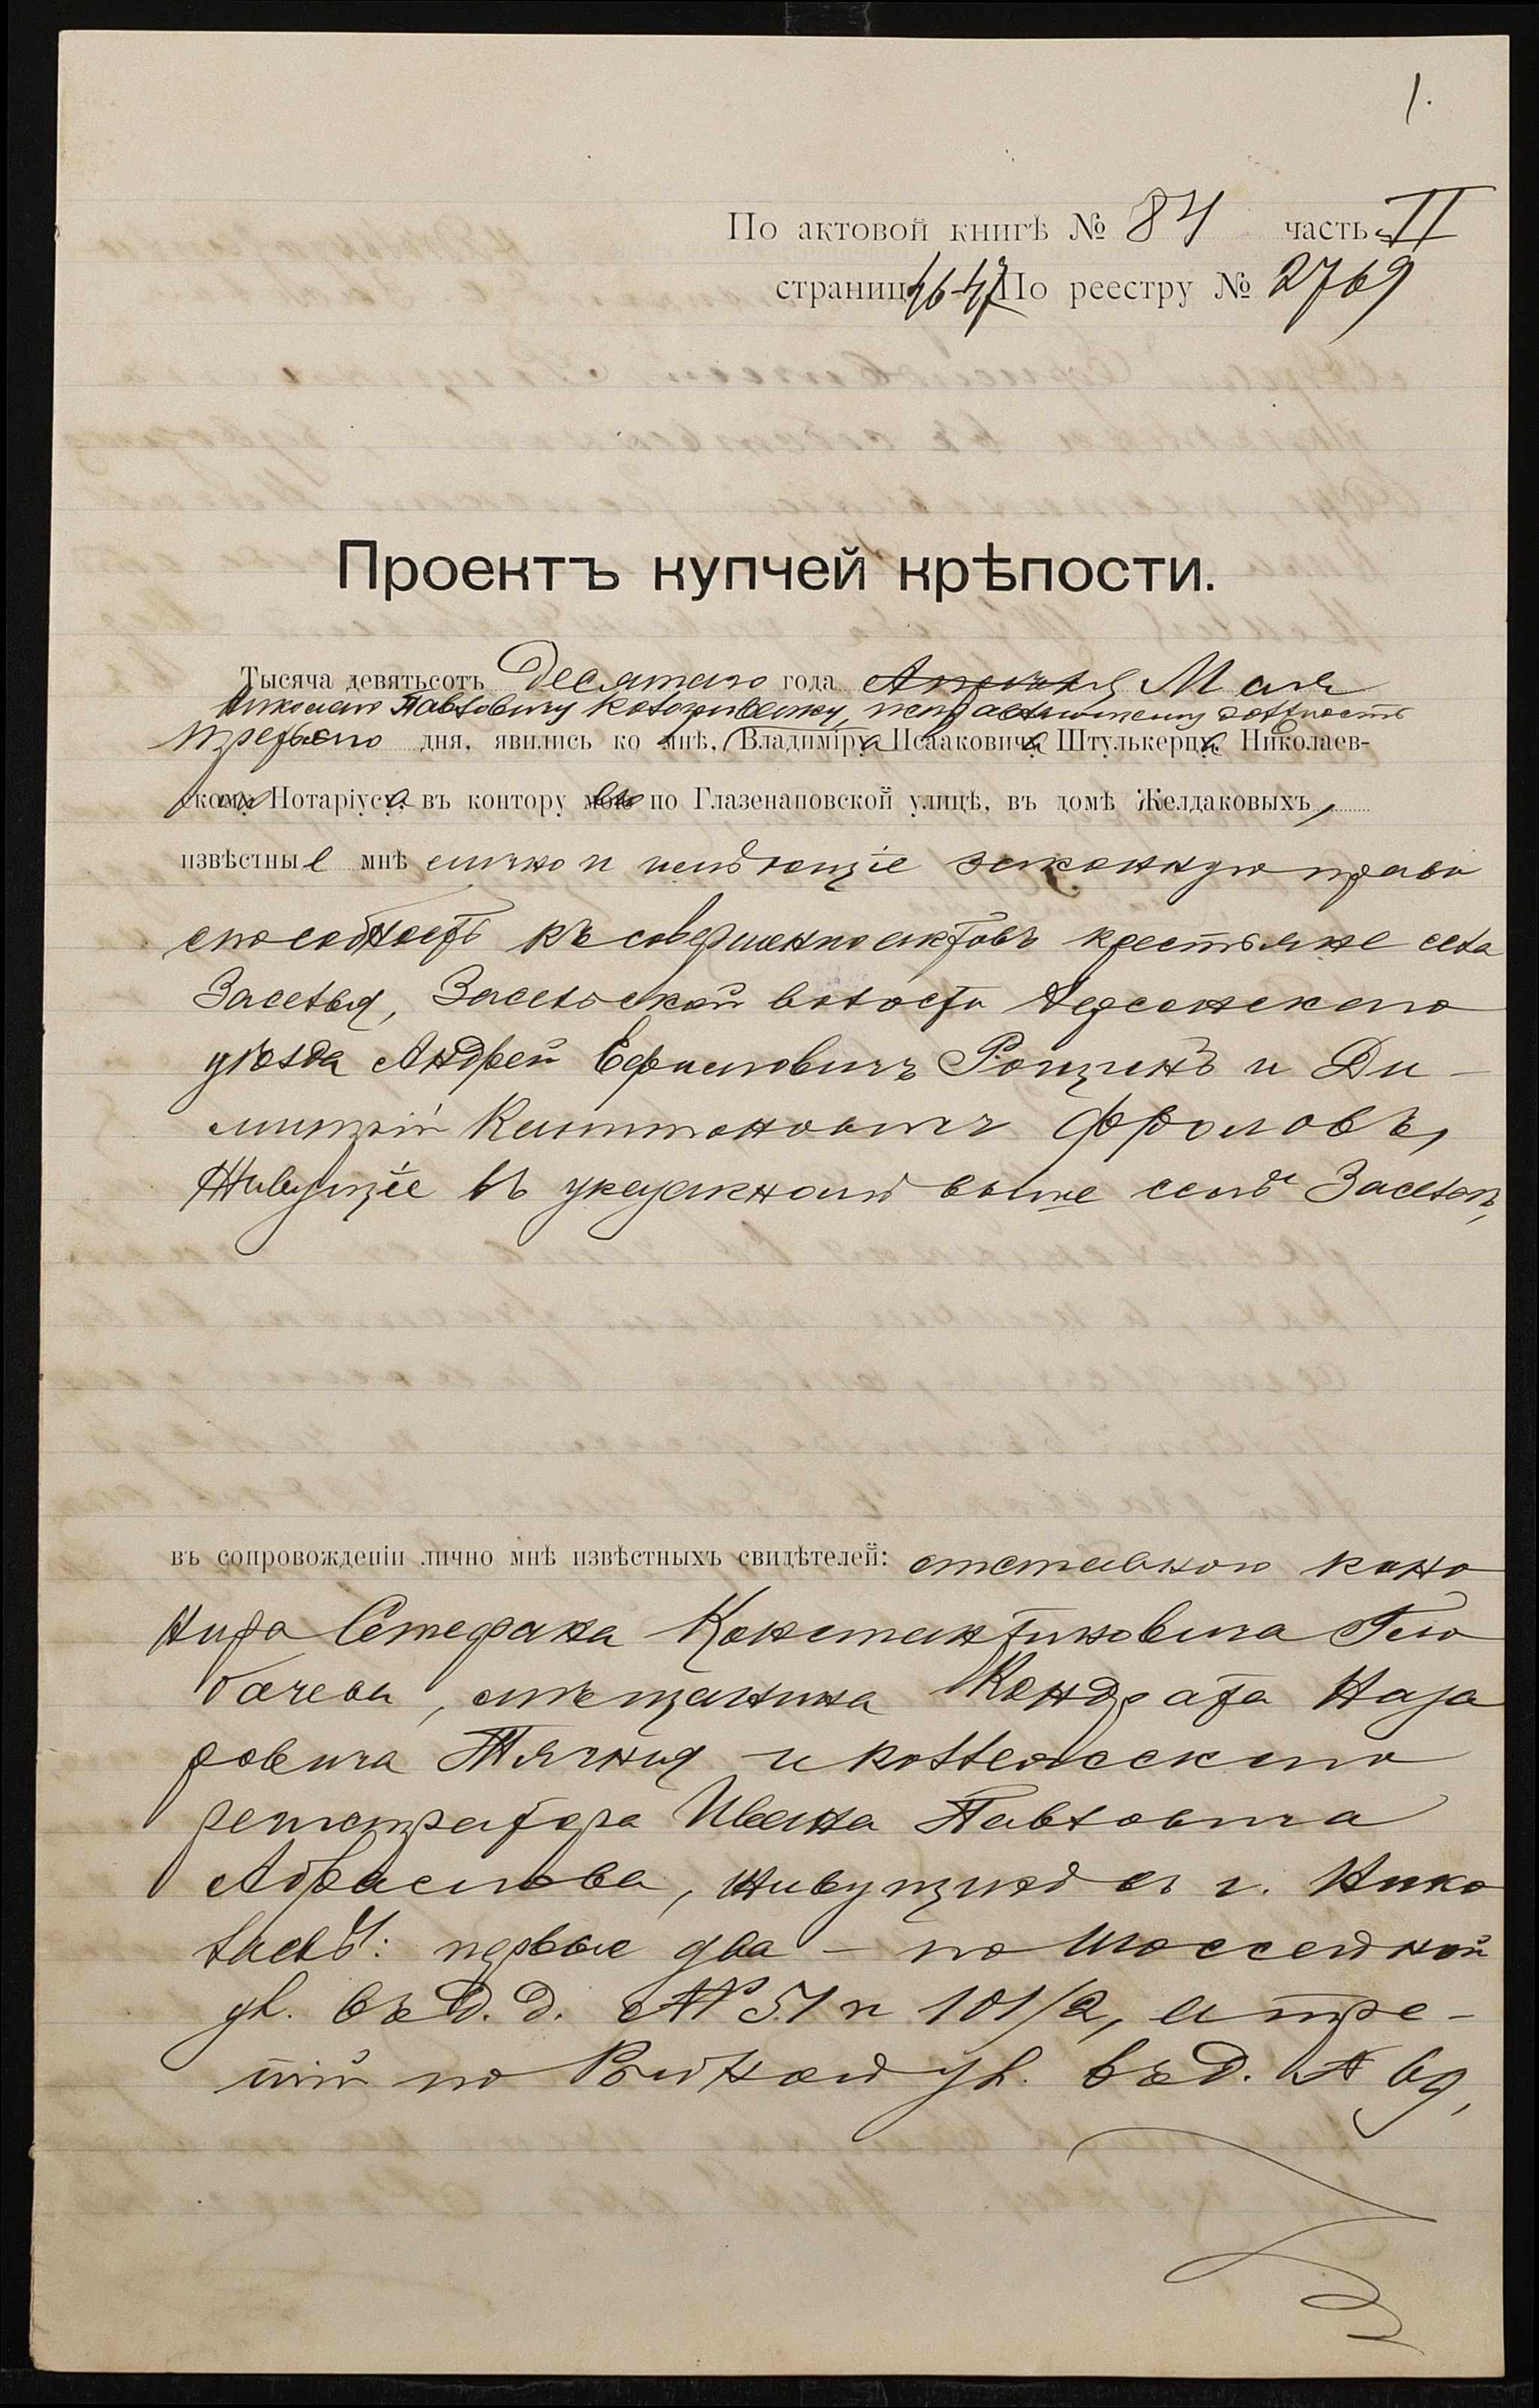 1.
По актовой книгѣ № 84 часть II
страниц 46-47 По реестру № 2769
Проектъ купчей крѣпости.
Тысяча девятьсотъ Десятаго года Апрѣля Мая
Николаю Павловичу исправляющему должность
третьяго дня, явились ко мнѣ, Владиміра Исааковича Штулькерца, Николаев-
скаго Нотаріуса въ контору его по Глазенаповской улицѣ, въ домѣ Желдаковыхъ,
извѣстные мнѣ лично и имѣющіе законную право
способность къ совершенію актовъ крестьяне села
Заселья, Засельской волости Херсонскаго
уѣзда Андрей Ефимовичъ Рощинъ и Ди-
митрій Капитоновичъ Фроловъ,
живущіе въ указанномъ выше селѣ Заселье,
въ сопровожденіи лично мнѣ извѣстныхъ свидѣтелей: отставного кано
нира Стефана Константиновича Гло
бачева, мѣщанина Кондрата Наза
ровича Тягния и коллежскаго
регистратора Ивана Павловича
Абрасимова, живущихъ въ г. Нико
лаевѣ: первые два - по Шоссейной
ул. въ д. д. № 51 и 101/2, а тре-
тій по ул. въ д. № 69,